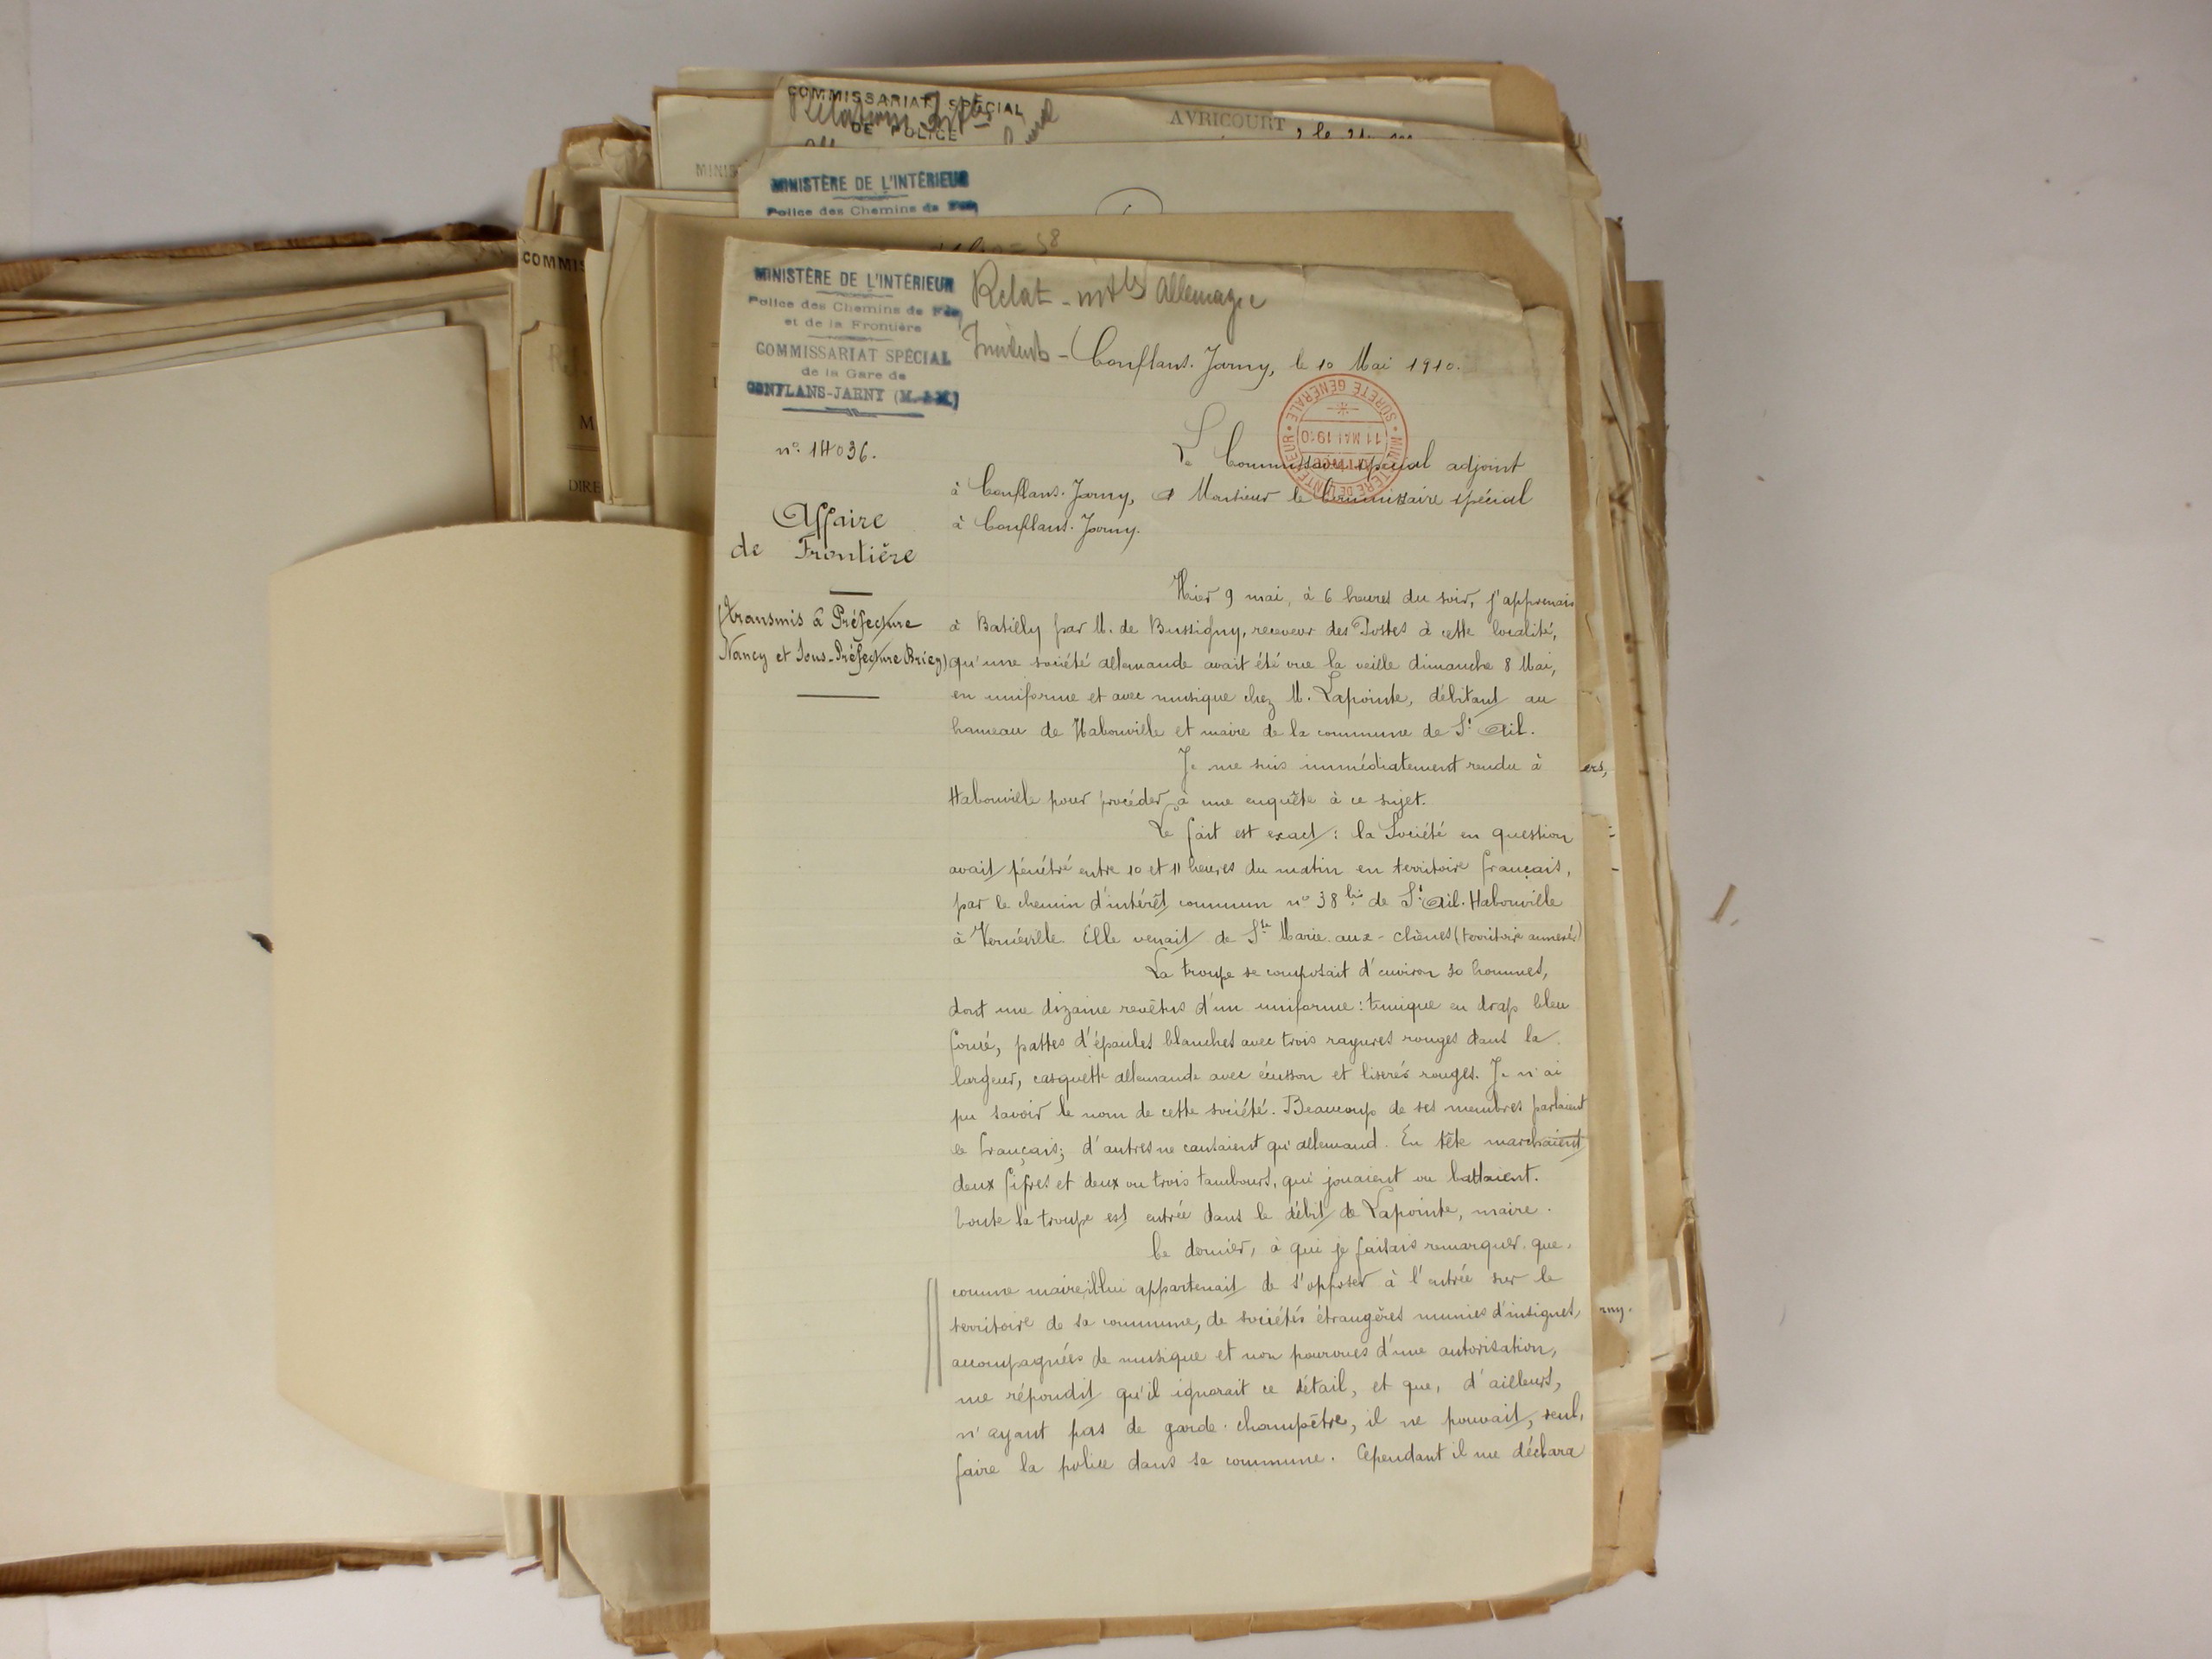 COMMISSARIAT SPÉCIAL
DE POLICE
AVRICOURT, le
MINISTÈRE DE L'INTÉRIEUR
Police des Chemins de Fer
COMMIS
DIRE
MINISTÈRE DE L'INTÉRIEUR
Police des Chemins de Fer
et de la Frontière
COMMISSARIAT SPÉCIAL
de la Gare de
CONFLANS-JARNY (M.-&-M.)
Relat - intles Allemagne
Incidents -
Conflans-Jarny, le 10 Mai 1910.
SURETÉ GÉNÉRALE
11 MAI 1910
MINISTÈRE DE L'INTÉRIEUR
n° 14036.
Affaire
de Frontière
(transmis à Préfecture
Nancy et Sous-Préfecture Briey)
Le Commissaire spécial adjoint
à Conflans-Jarny, à Monsieur le Commissaire spécial
à Conflans-Jarny.
Hier 9 mai, à 6 heures du soir, j'apprenais
à Batilly par M. de Bussigny, receveur des Postes à cette localité,
qu'une société allemande avait été vue la veille dimanche 8 Mai,
en uniforme et avec musique chez M. Lapointe, débitant au
hameau de Habonville et maire de la commune de St Ail.
Je me suis immédiatement rendu à
Habonville pour procéder à une enquête à ce sujet.
Le fait est exact : la Société en question
avait pénétré entre 10 et 11 heures du matin en territoire français,
par le chemin d'intérêt commun n° 38 bis de St Ail-Habonville
à Vernéville. Elle venait de Ste Marie-aux-chênes (territoire annexé)
La troupe se composait d'environ 50 hommes,
dont une dizaine revêtus d'un uniforme : tunique en drap bleu
foncé, pattes d'épaules blanches avec trois rayures rouges dans la
largeur, casquette allemande avec écusson et liserés rouges. Je n'ai
pu savoir le nom de cette société. Beaucoup de ses membres parlaient
le français; d'autres ne causaient qu'allemand. En tête marchaient
deux fifres et deux ou trois tambours, qui jouaient ou battaient.
Toute la troupe est entrée dans le débit de Lapointe, maire.
Ce dernier, à qui je faisais remarquer que,
comme maire, il lui appartenait de s'opposer à l'entrée sur le
territoire de sa commune, de sociétés étrangères munies d'insignes,
accompagnées de musique et non pourvues d'une autorisation,
me répondit qu'il ignorait ce détail, et que, d'ailleurs,
n'ayant pas de garde-champêtre, il ne pouvait, seul,
faire la police dans sa commune. Cependant il me déclara